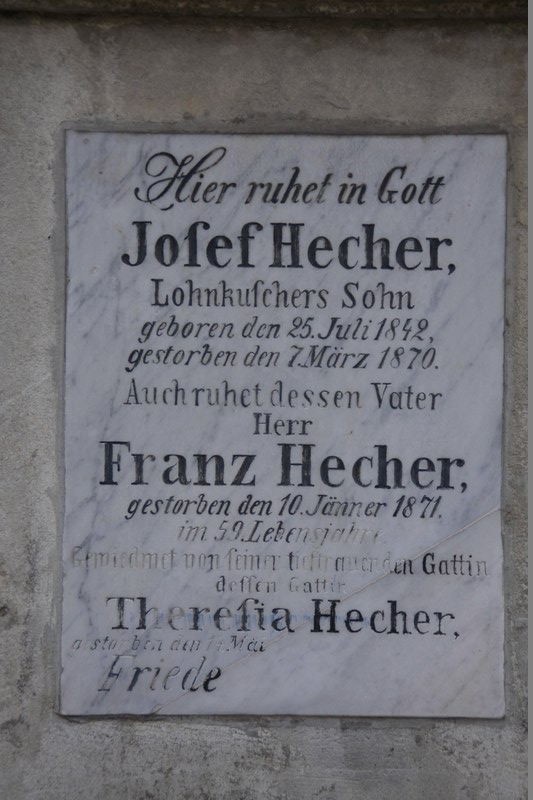 Hier ruhet in Gott
Joſef Hecher,
Lohnkuſchers Sohn
geboren den 25. Juli 1842,
gestorben den 7. März 1870.
Auch ruhet dessen Vater
Herr
Franz Hecher,
gestorben den 10. Jänner 1871.
im 59. Lebensjahre
Gewiedmet von ſeiner tieftrauernden Gattin
deſſen Gattin
Thereſia Hecher,
gestorben den Mai
Friede